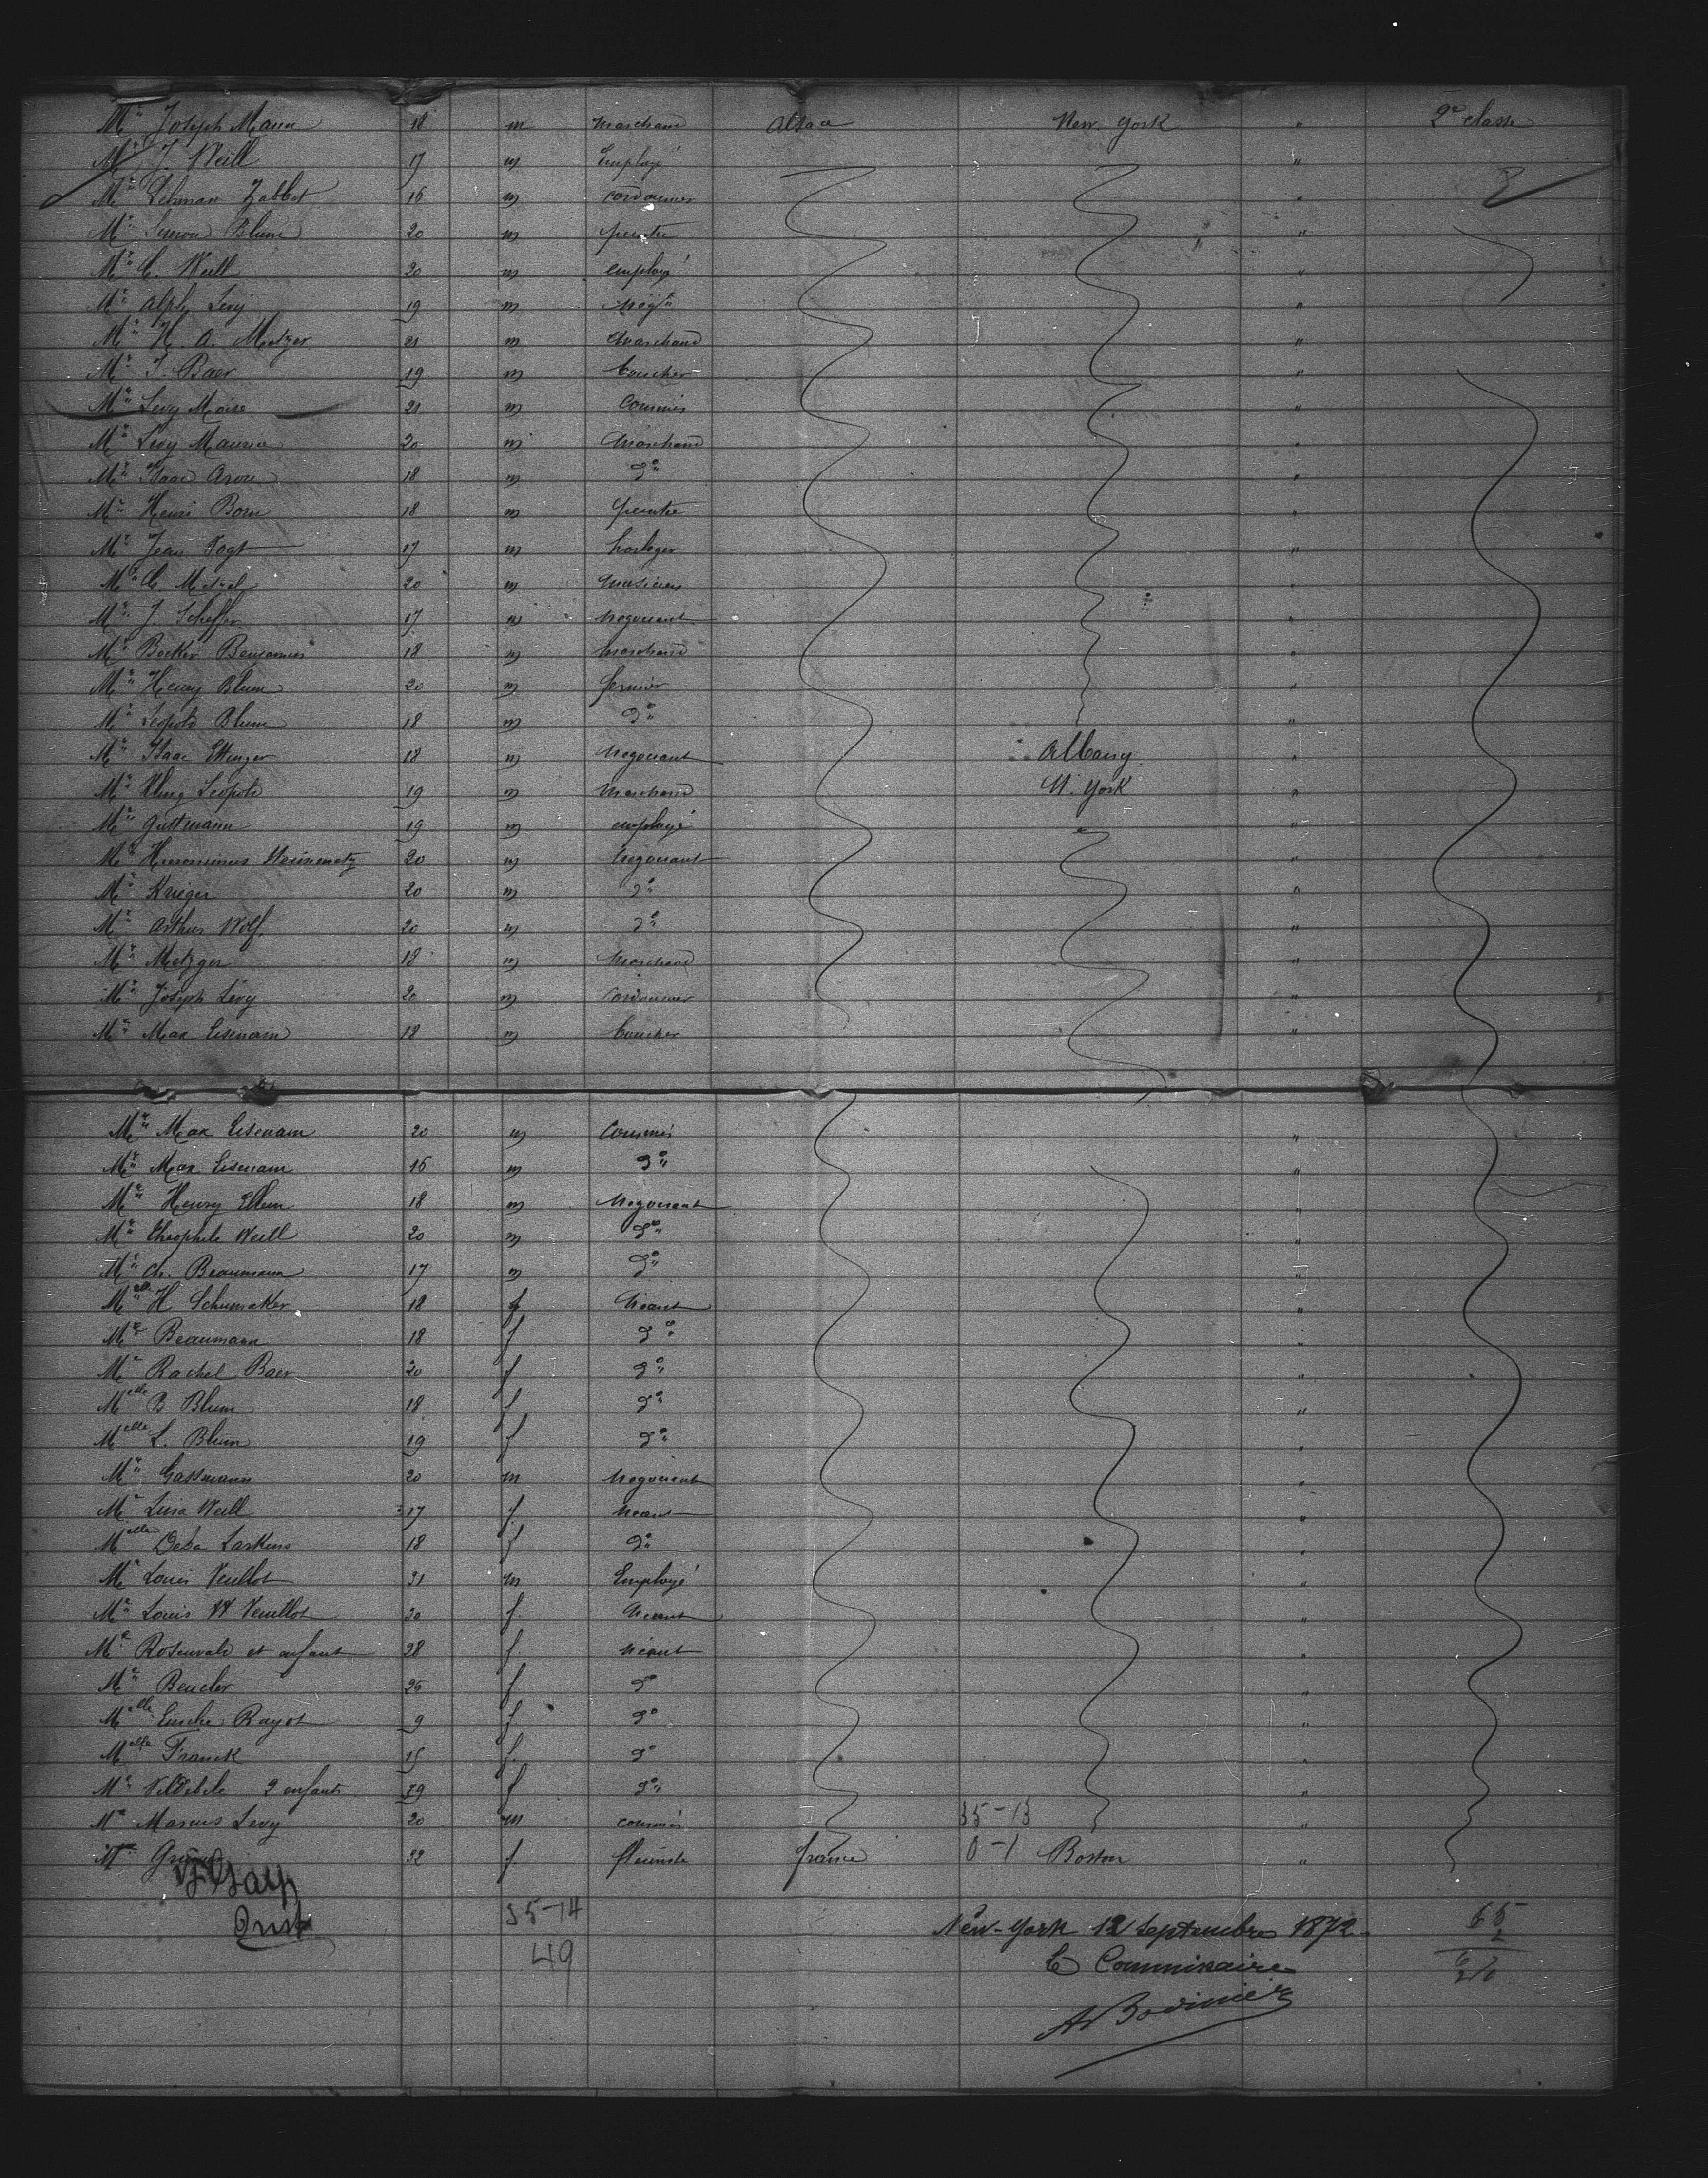 Mr. Joseph Mann 18 m Marchand Alsace New York " 2e classe
Mr. J. Weill 17 m Employé "
Mr. Lehman 16 m cordonnier "
Mr. Simon Blum 20 m peintre "
Mr. C. Weill 20 m employé "
Mr. Alph. Levy 19 m Negt. "
Mr. H. A. Metzer 21 m Marchand "
Mr. J. Baer 19 m boucher "
Mr. Levy Moise 21 m Commis "
Mr. Levy Maurice 20 m Marchand "
Mr. Isaac Aron 18 m do. "
Mr. Henri Born 18 m peintre "
Mr. Jean Vogt 17 m horloger "
Mr. C. 20 m musicien "
Mr. J. Scheffer 17 m negociant "
Mr. Becker Benjamin 18 m marchand "
Mr. Henry Blum 20 m fermier "
Mr. Leopold Blum 18 m do. "
Mr. Isaac Ettinger 18 m negociant Albany "
Mr. Leopold 19 m Marchand N. York "
Mr. Guttmann 19 m employé "
Mr. Hieronimus 20 m negociant "
Mr. Krieger 20 m do. "
Mr. Arthur Wolf. 20 m do. "
Mr. Metzger 18 m Marchand "
Mr. Joseph Levy 20 m Cordonnier "
Mr. Max Eisenam 18 m boucher "
Mr. Max Eisenam 20 m Commis "
Mr. Max Eisenam 16 m do. "
Mr. Henry 18 m Negociant "
Mr. Theophile Weill 20 m do. "
Mr. Ch. Beaumann 17 m do. "
Melle H Schumaker 18 f Neant "
Me. Beaumann 18 f do. "
Me. Rachel Baer 20 f do. "
Melle B Blum 18 f do. "
Melle L. Blum 19 f do. "
Mr. Gassmann 20 m Negociant "
Me. Lina Weill 17 f. Neant "
Melle Deba Larkins 18 f do. "
Mr Louis Veuillot 31 m Employé "
Me. Louis Veuillot 30 f. Neant "
Me. Rosenvald et enfant 28 f. néant "
Me. Bencler 26 f do "
Melle Emelie Rayot 9 f do "
Melle Franck 15 f. do "
Me. 2 enfants 29 f do. "
Mr Marcus Levy 20 m commis 35-13 "
32 f. fleuriste france 0-1 Boston "
35-14
49
New-York 12 Septembre 1872.
Le Commissaire
A Bodinier
65
2